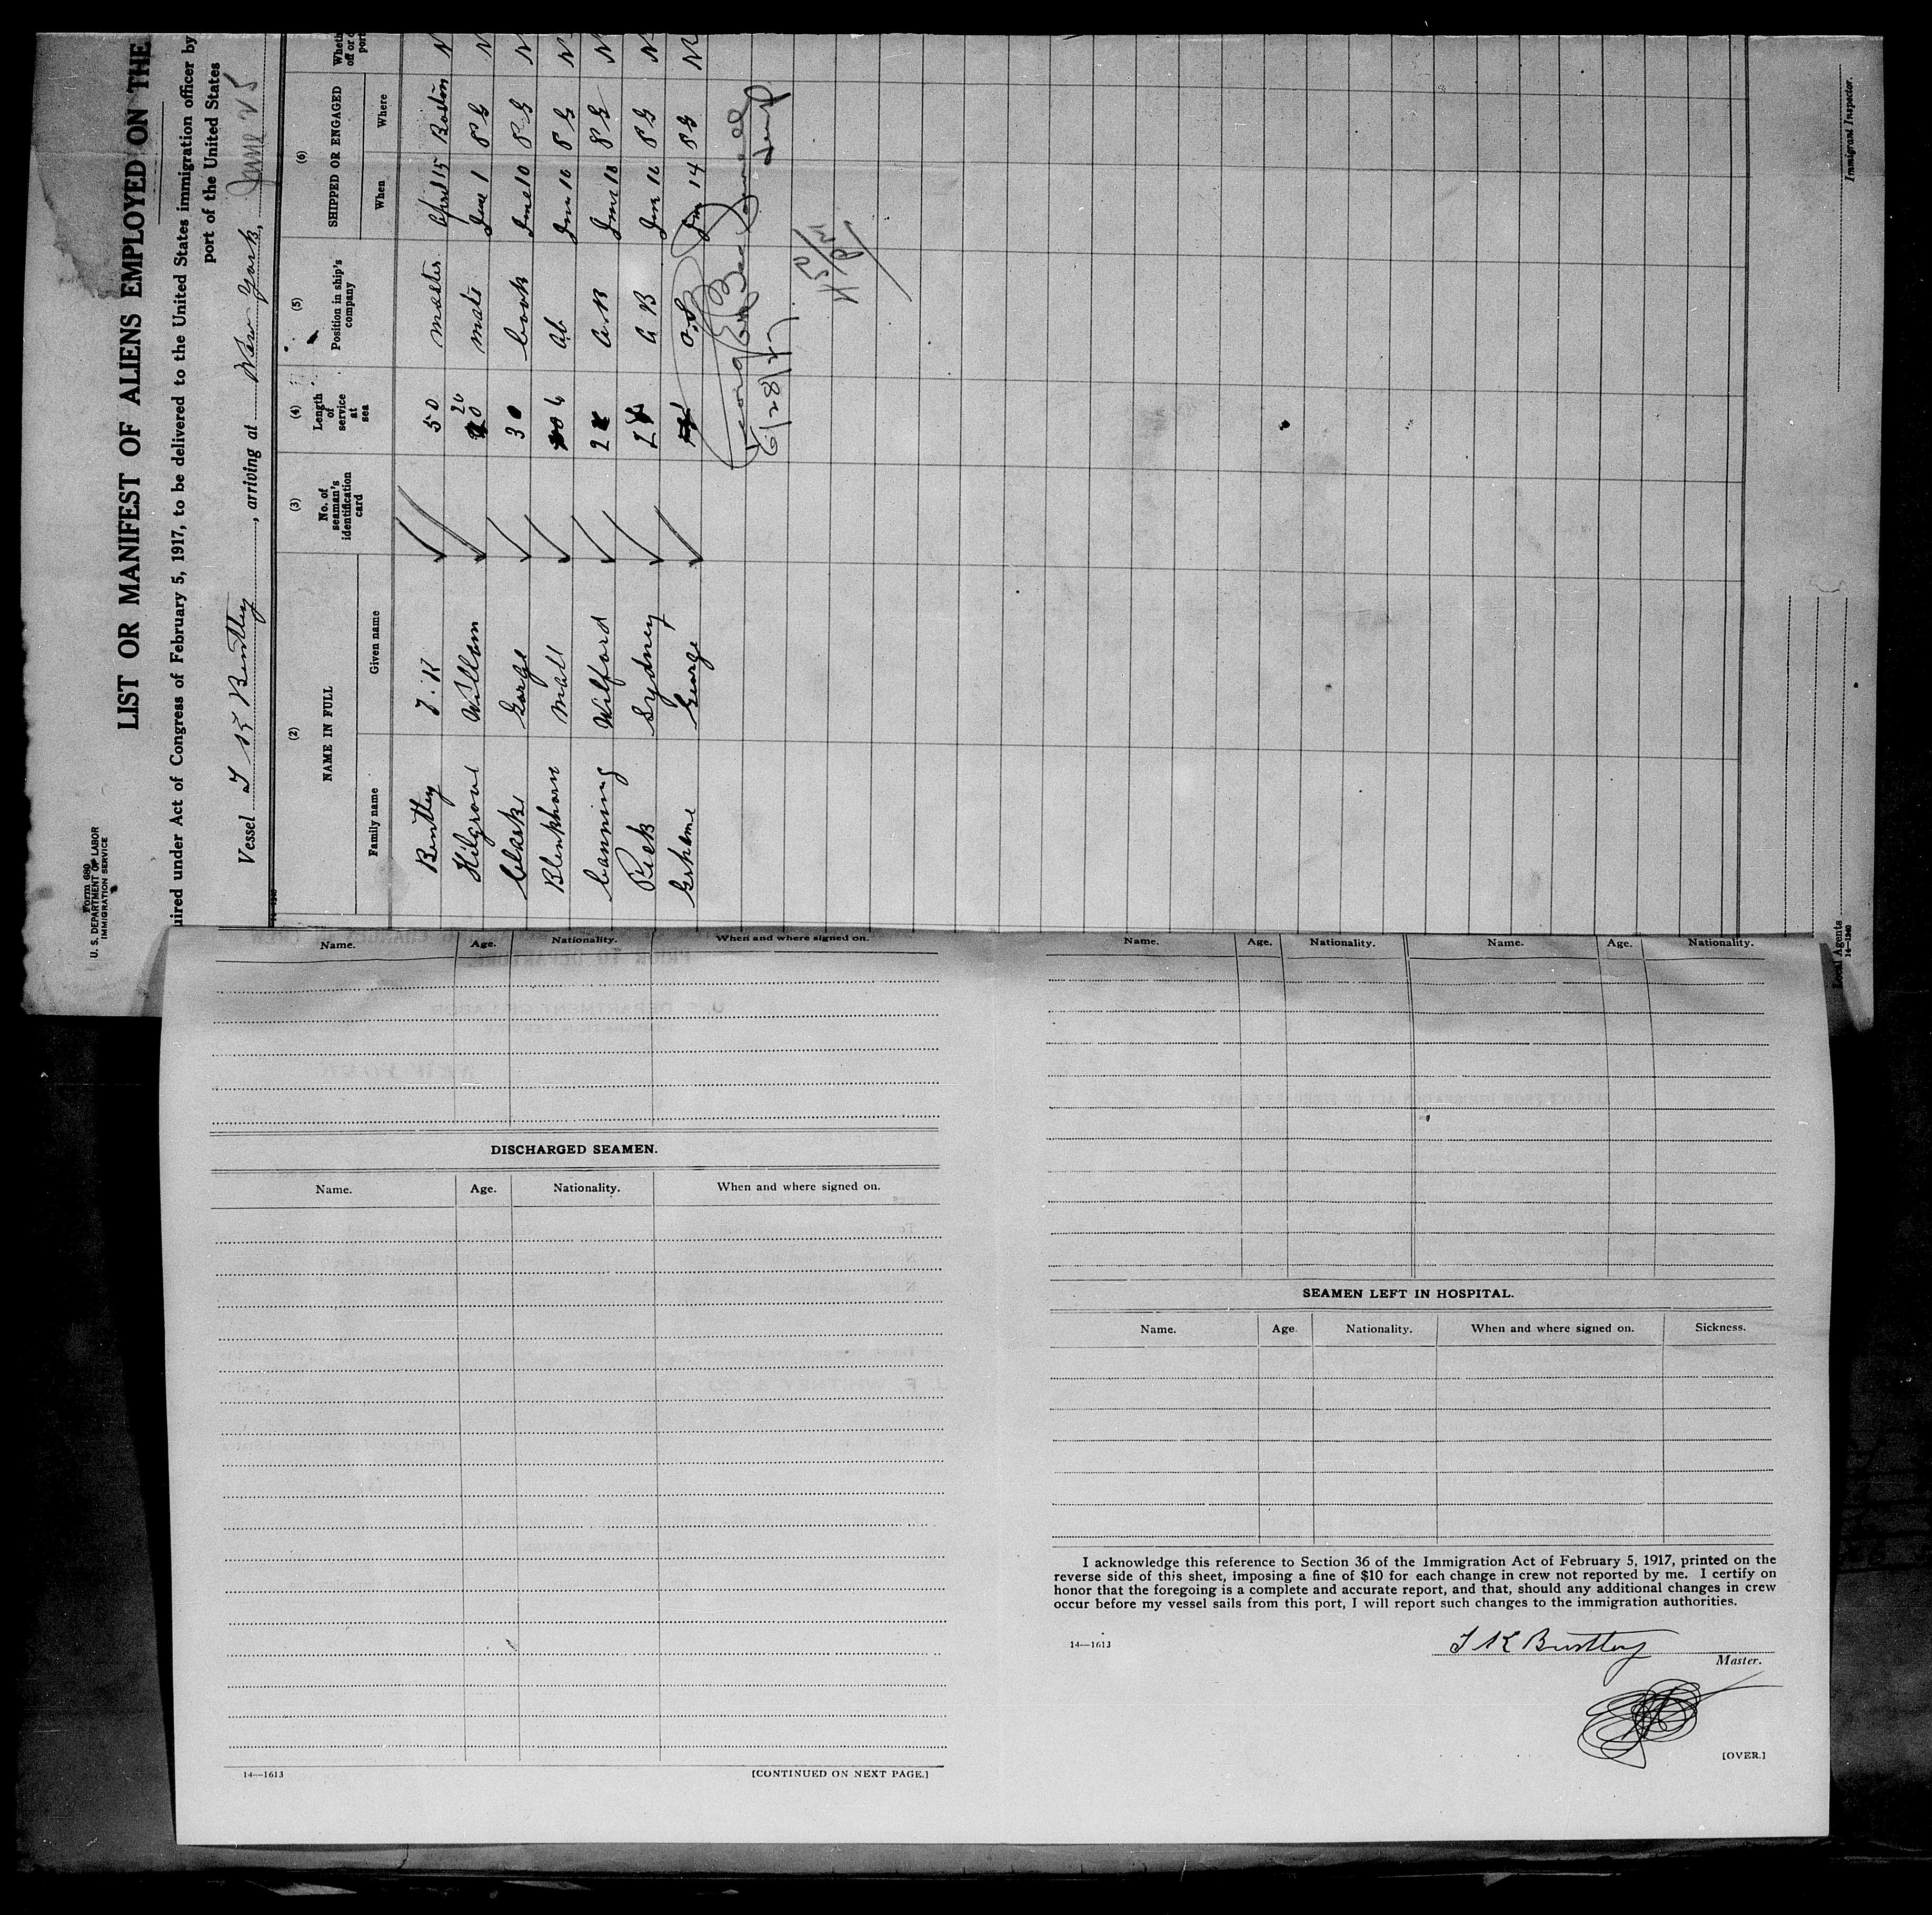 Form 680
U. S. DEPARTMENT OF LABOR
IMMIGRATION SERVICE
LIST OR MANIFEST OF ALIENS EMPLOYED ON THE
uired under Act of Congress of February 5, 1917, to be delivered to the United States immigration officer by
port of the United States
Vessel T K Bentley, arriving at New York, June 25
(2) (3) (4) (5) (6)
NAME IN FULL No. of seaman's identification card Length of service at sea Position in ship's company SHIPPED OR ENGAGED
Family name Given name When Where
Bentley T. K 50 master April 15 Boston N
Hilgrove William 20 mate June 1 P G N
Clarke Gorge 30 Cook June 10 P G N
Blenkhorn 6 ab Jun 10 P G N
Canning Wilford 2 A.B Jun 10 P G N
Rick Sydney A B Jun 10 P G N
Grhame George O.S Jun 14 P G N
6/28/27
14—1240
Immigrant Inspector.
Local Agents
Name. Age. Nationality. When and where signed on.
DISCHARGED SEAMEN.
Name. Age. Nationality. When and where signed on.
14—1613 [CONTINUED ON NEXT PAGE.]
Name. Age. Nationality. Name. Age. Nationality.
SEAMEN LEFT IN HOSPITAL.
Name. Age Nationality. When and where signed on. Sickness.
I acknowledge this reference to Section 36 of the Immigration Act of February 5, 1917, printed on the
reverse side of this sheet, imposing a fine of $10 for each change in crew not reported by me. I certify on
honor that the foregoing is a complete and accurate report, and that, should any additional changes in crew
occur before my vessel sails from this port, I will report such changes to the immigration authorities.
14—1613 T K Bentley
Master.
[OVER.]